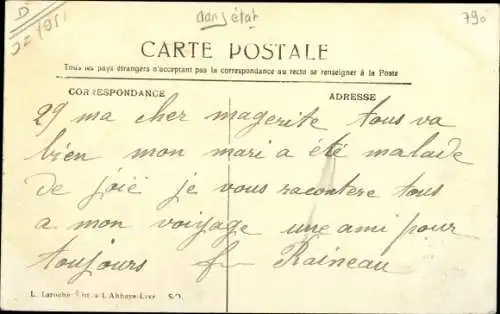 dans état
790
CARTE POSTALE
Tous les pays étrangers n'acceptant pas la correspondance au recto se renseigner à la Poste
CORRESPONDANCE
ADRESSE
29 ma cher magerite tous va
bien mon mari a été malade
de joië je vous racontere tous
a mon voiyage une ami pour
toujours Raineau
L. Laroche L'Abbaye-Live